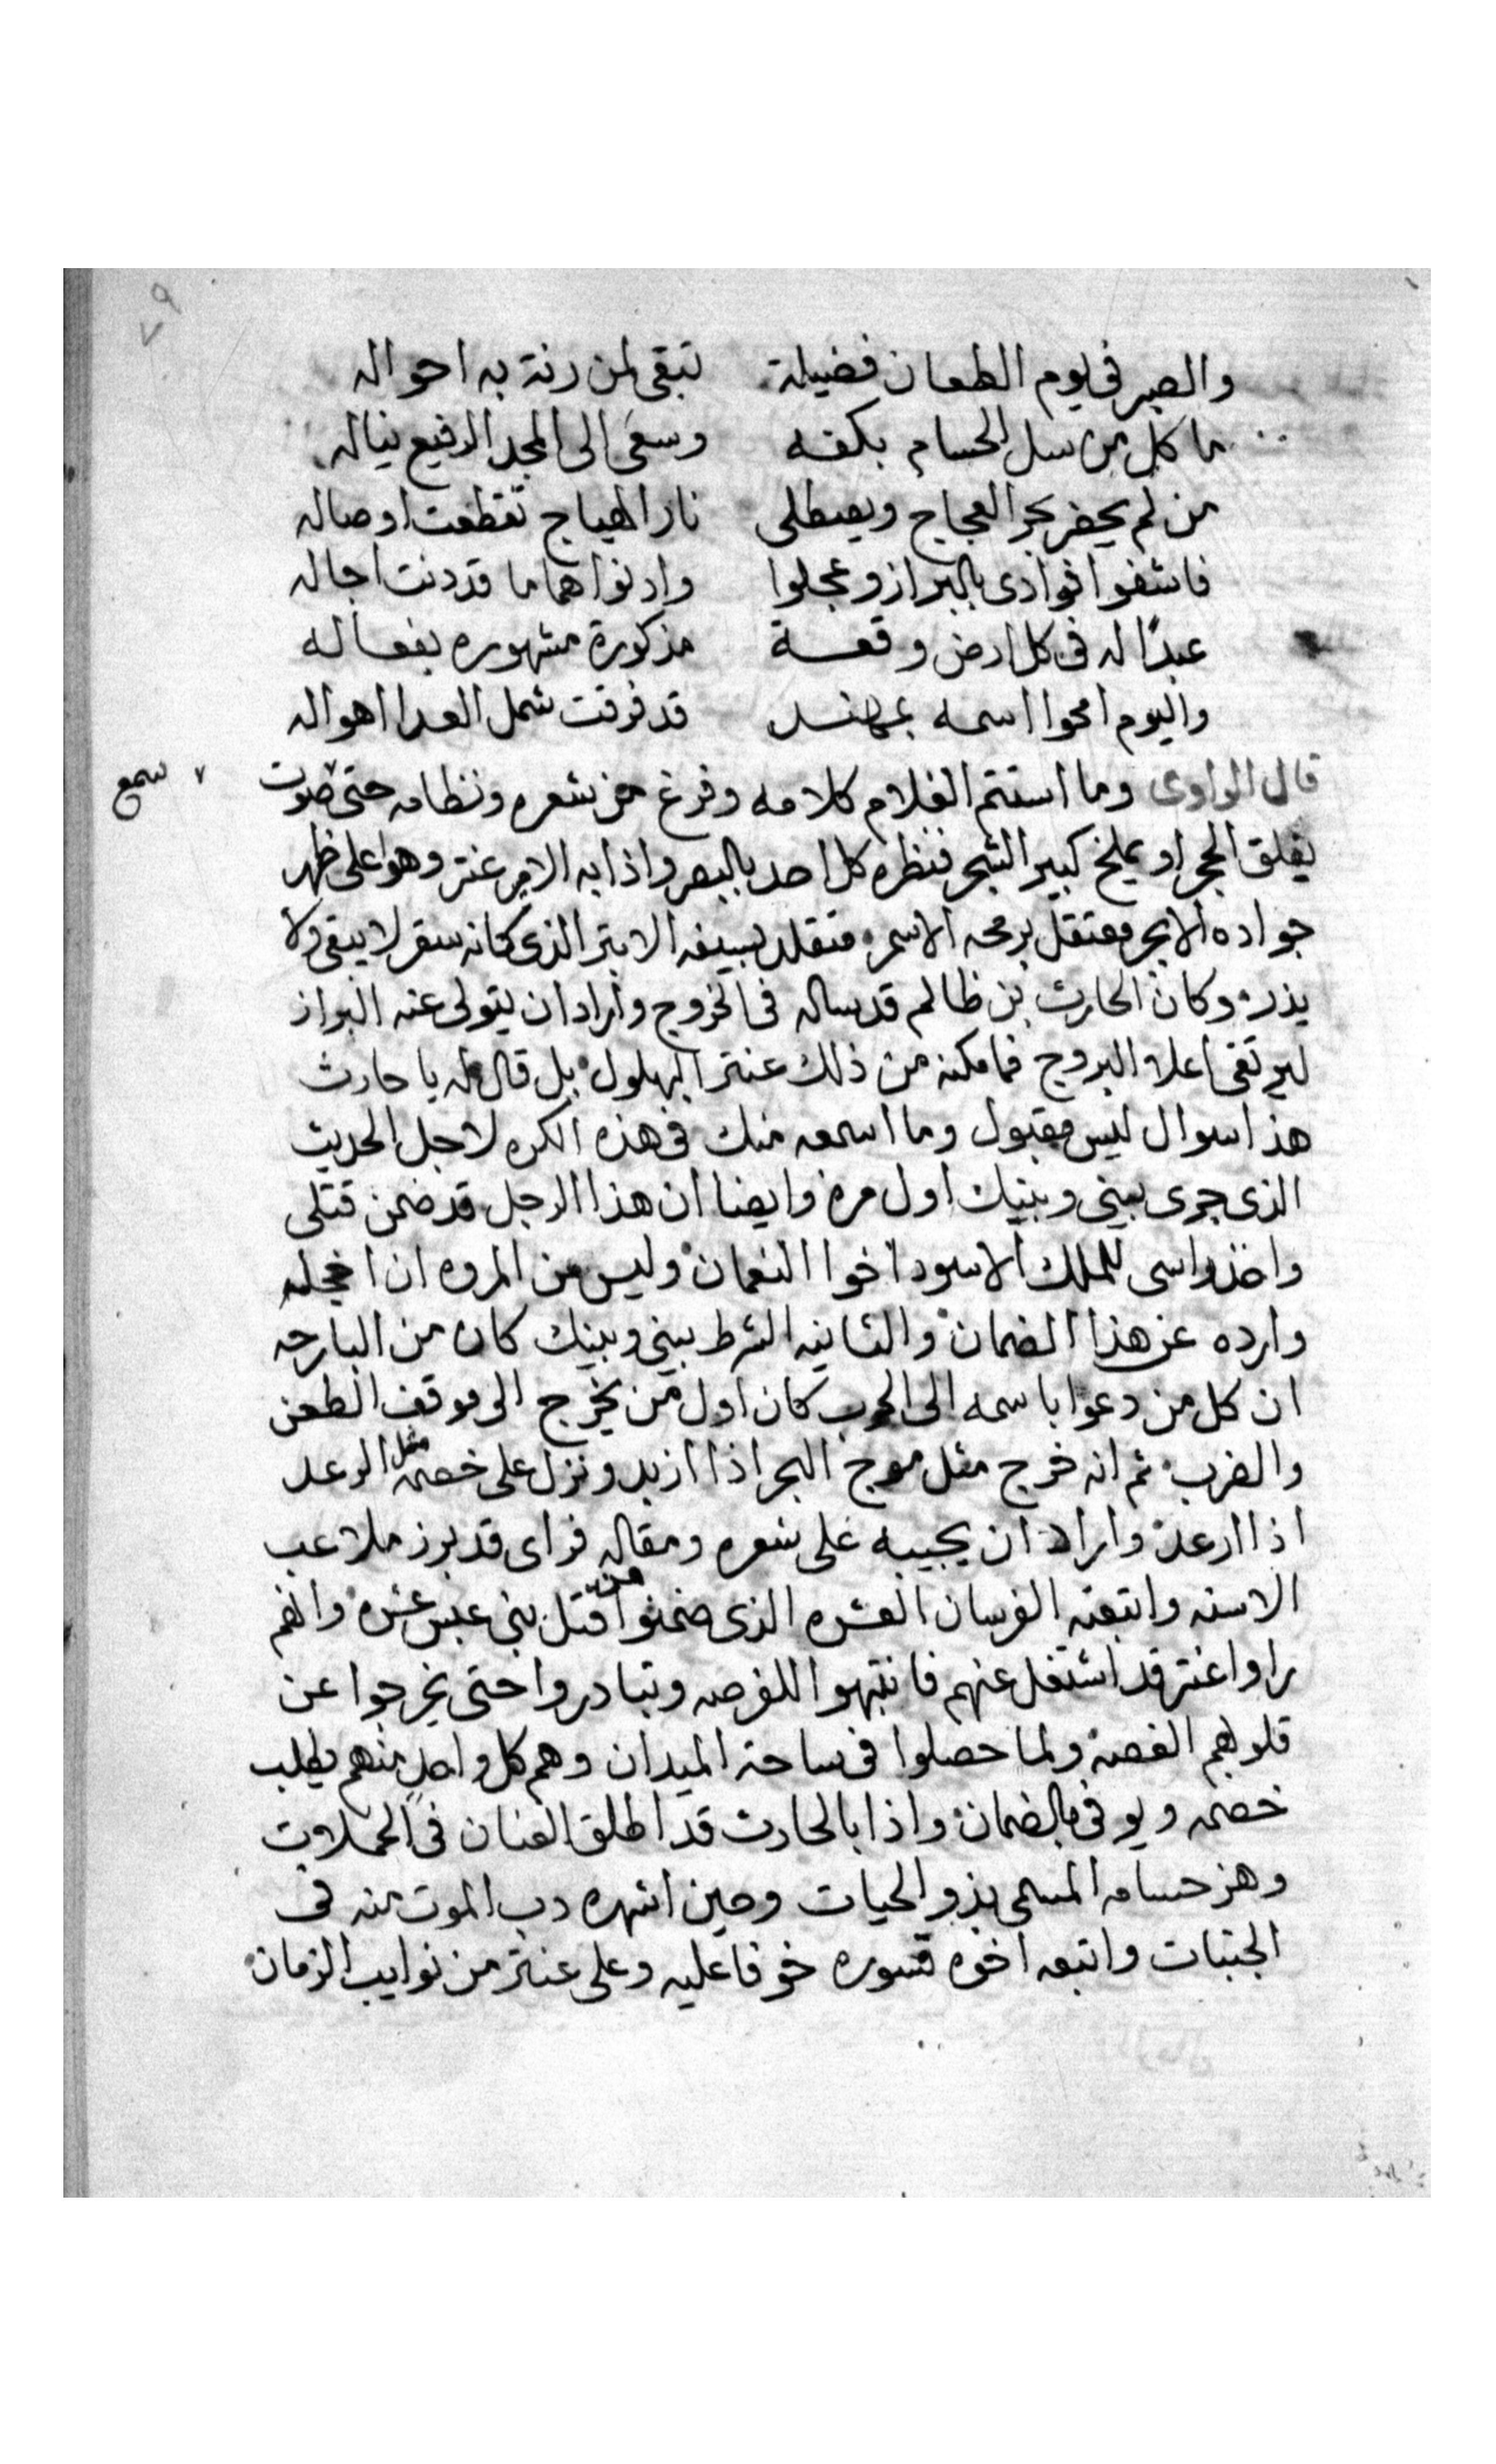 ٧٩
والصبر فى يوم الطعان فضيلة تبقى لمن رنة به احواله
ما كل من سل الحسام بكفه وسعى الى المجد الرفيع يناله
من لم يحضر بحر العجاج ويصطلى نار الهياج تقطعت اوصاله
فاشفوا فوادى بالبراز وعجلوا وادنوا هماما قد دنت اجاله
عبدًا له فى كل ارض وقعة مذكورة مشهوره بفعاله
واليوم امحوا اسمه بمهند قد فرقت شمل العدا اهواله
قال الراوى وما استتم الغلام كلامه وفرغ من شعره ونظامه حتى صوت
سمع
يفلق الحجر او يملخ كبير الشجر فنظره كل احد بالبصر واذا به الامير عنتر وهوا على ظهر
جواده الابجر معتقل برمحه الاسمر متقلد بسيفه الابتر الذى كانه سقر لا يبقى ولا
يذر وكان الحارث بن ظالم قد ساله فى الخروج واراد ان يتولى عنه البراز
ليرتقى اعلا البروج فما مكنه من ذلك عنتر البهلول بل قال له يا حارث
هذا سوال ليس مقبول وما اسمعه منك فى هذه الكره لاجل الحديث
الذى جرى بينى وبينك اول مره وايضا ان هذا الرجل قد ضمن قتلى
واخذ راسى للملك الاسود اخوا النعمان وليس من المروه ان اخجله
وارده عن هذا الضمان والثانيه الشرط بينى وبينك كان من البارحه
ان كل من دعوا باسمه الى الحرب كان اول من يخرج الى موقف الطعن
والضرب ثم انه خرج مثل موج البحر اذا ازبد ونزل على خصمه مثل الرعد
اذا ارعد واراد ان يجيبه على شعره ومقاله فراى قد برز ملاعب
الاسنه واتبعته الفرسان العشره الذى ضمنوا قتل من بنى عبس عشره وانهم
راوا عنتر قد اشتغل عنهم فانتهبوا الفرصه وتبادروا حتى يخرجوا عن
قلوبهم الغصه ولما حصلوا فى ساحة الميدان وهم كل واحد منهم يطلب
خصمه ويوفى بالضمان واذا بالحارث قد اطلق العنان فى الحملات
وهز حسامه المسمى بذو الحيات وحين اشهره دب الموت منه فى
الجنبات واتبعه اخوه قسوره خوفا عليه وعلى عنتر من نوايب الزمان